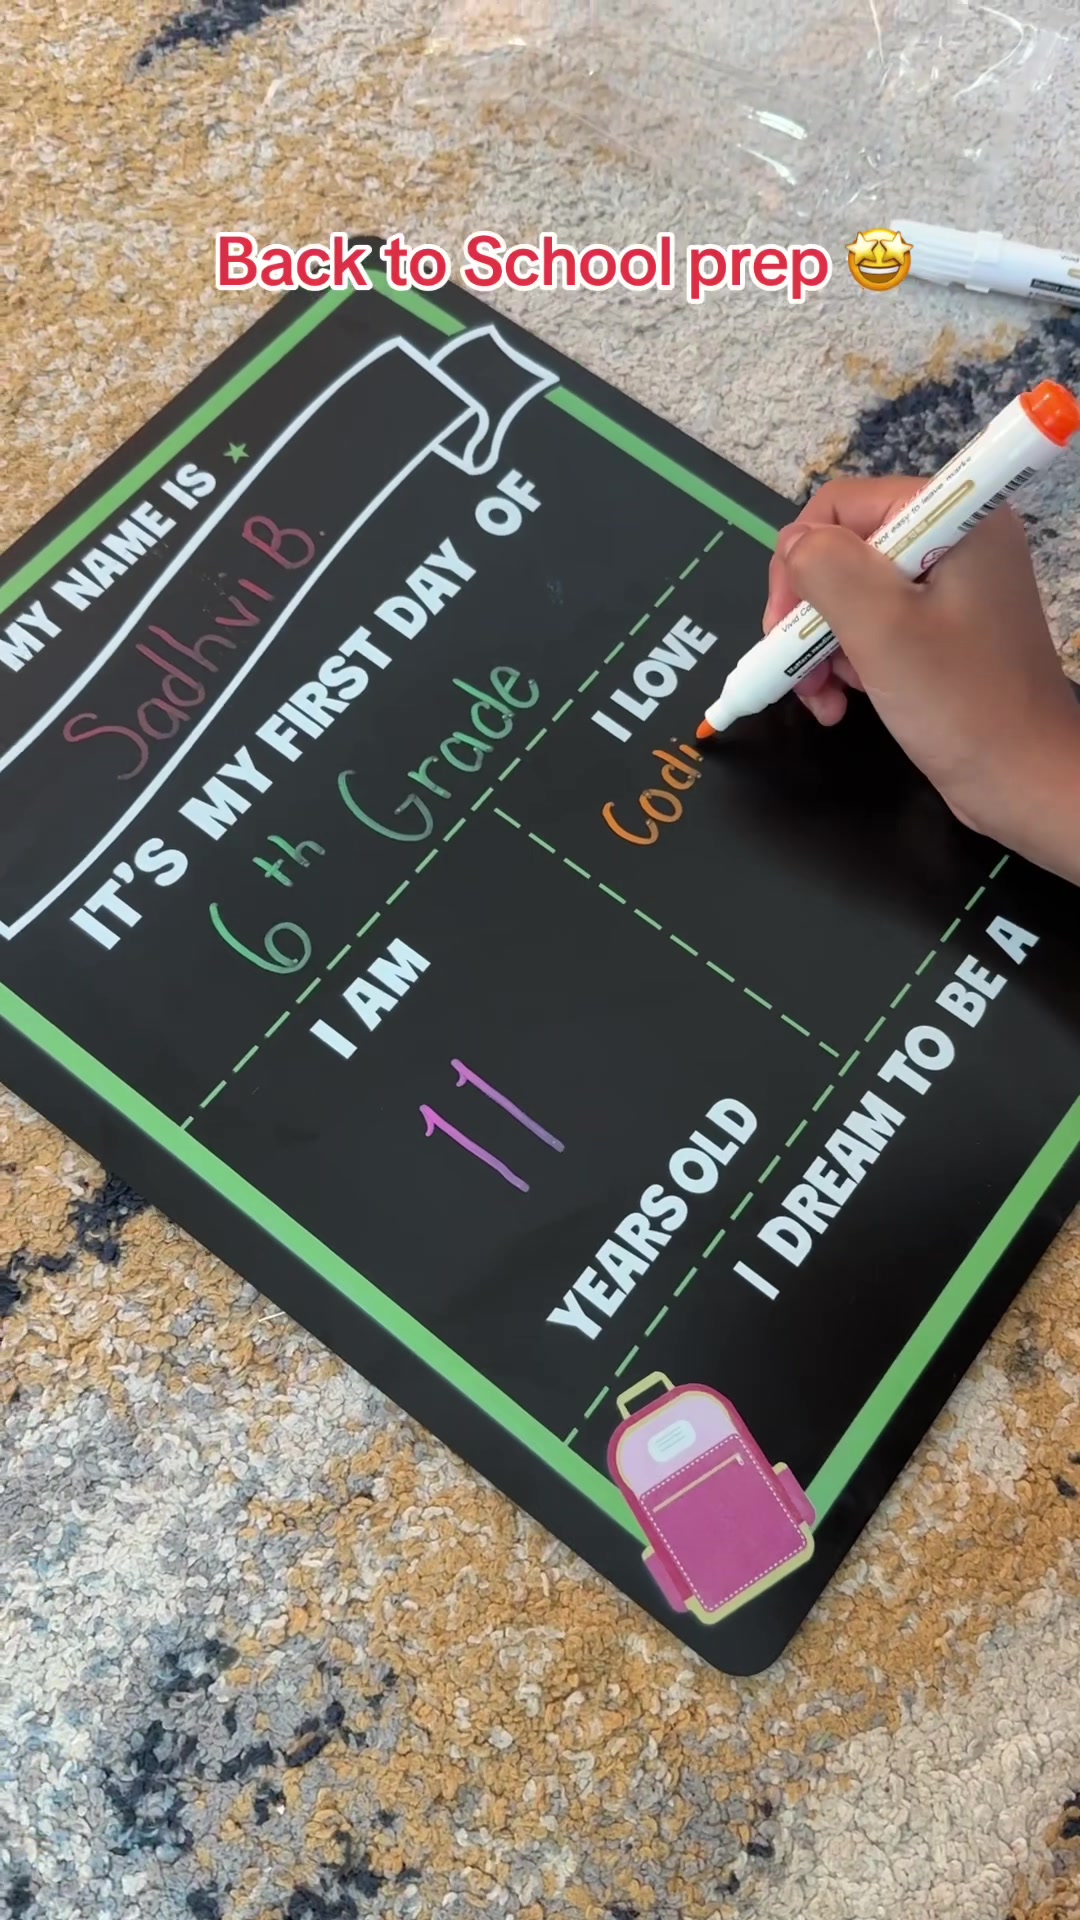 Back to School prep 🤩
MY NAME IS
Sadhvi B.
IT'S MY FIRST DAY OF
6th Grade
I AM
11
YEARS OLD
I LOVE
Codi
I DREAM TO BE A
Not easy to leave marks